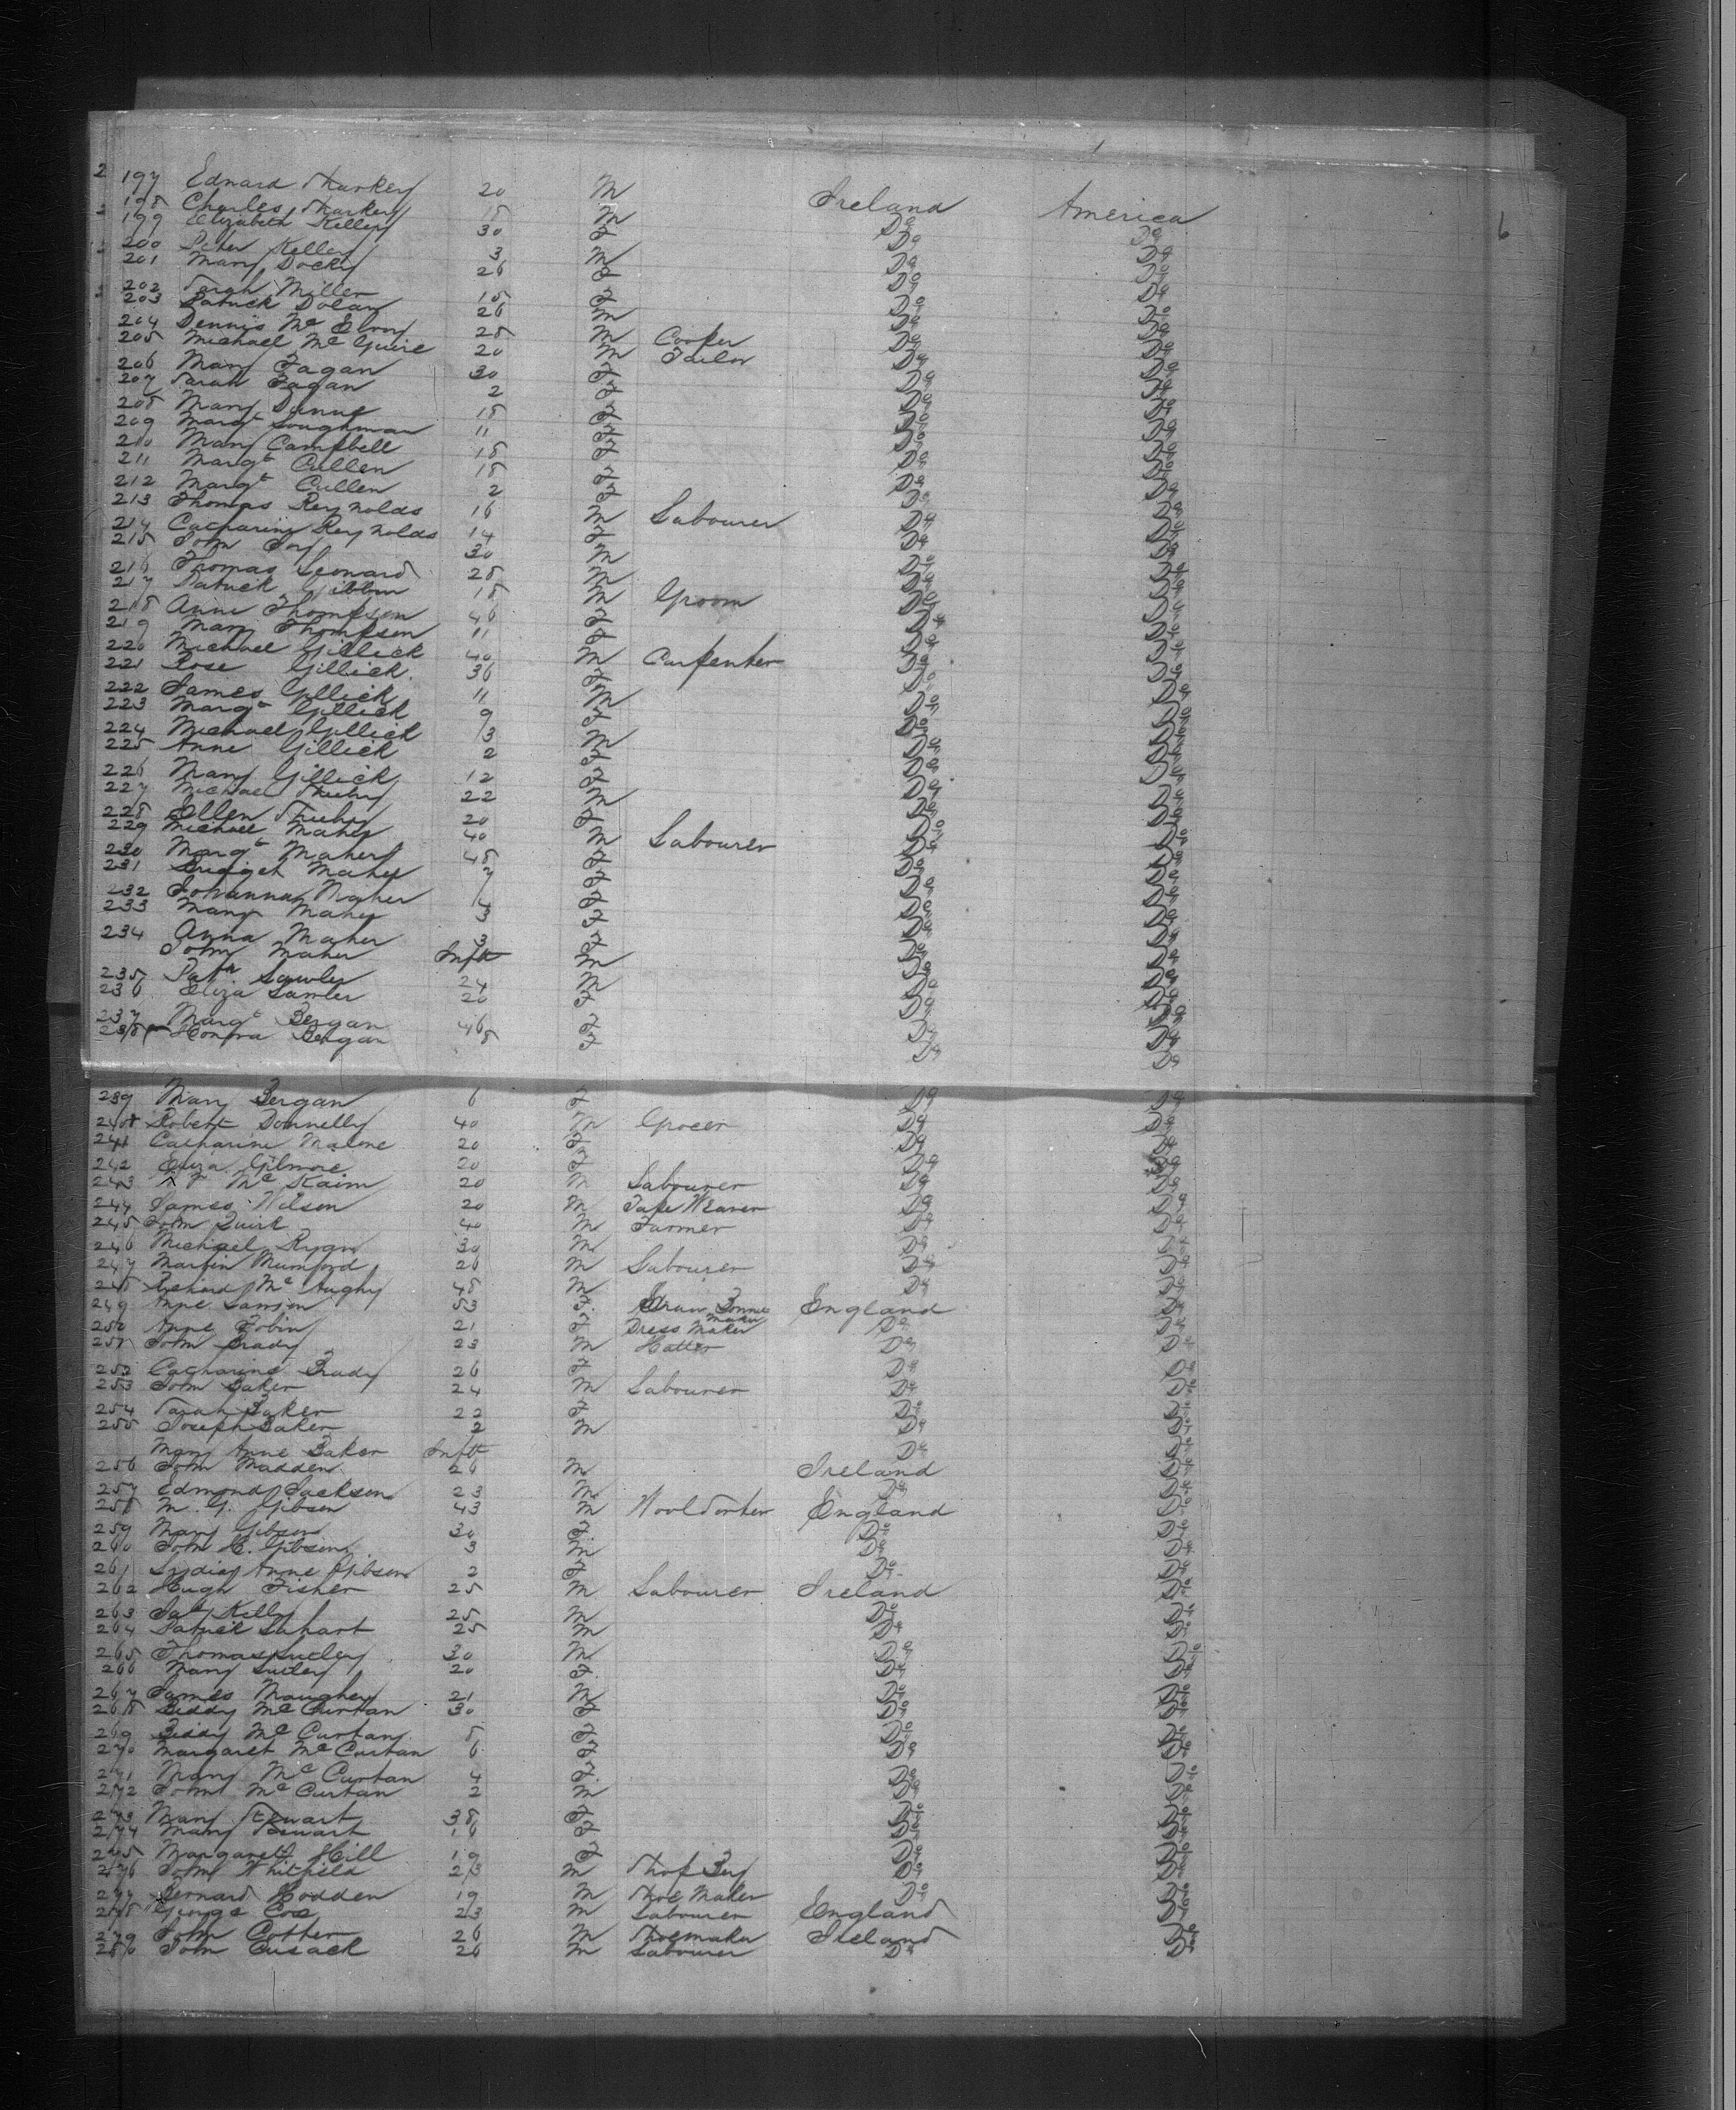 6
197 Edward Sharkey 20 M Ireland America
198 Charles Sharkey 18 M Do Do
199 Elizabeth Kelley 30 F Do Do
200 Peter Kelley 3 M Do Do
201 Mary Docky 26 F Do Do
202 Sarah Miller 18 F Do Do
203 Patrick Dolan 26 M Do Do
204 Dennis Mc Elroy 28 M Cooper Do Do
205 Michael Mc Guire 20 M Tailor Do Do
206 Mary Fagan 30 F Do Do
207 Sarah Fagan 2 F Do Do
208 Mary Dunne 18 F Do Do
209 Margt Loughman 11 F Do Do
210 Mary Campbell 18 F Do Do
211 Margt Cullen 18 F Do Do
212 Margt Cullen 2 F Do Do
213 Thomas Reynolds 16 M Labourer Do Do
214 Catharine Reynolds 14 F Do Do
215 John Foy 30 M Do Do
216 Thomas Leonard 28 M Do Do
217 Patrick Gibbin 18 M Groom Do Do
218 Anne Thompson 46 F Do Do
219 Mary Thompson 11 F Do Do
220 Michael Gillick 40 M Carpenter Do Do
221 Rose Gillick 36 F Do Do
222 James Gillick 11 M Do Do
223 Margt Gillick 9 F Do Do
224 Michael Gillick 3 M Do Do
225 Anne Gillick 2 F Do Do
226 Mary Gillick 12 F Do Do
227 Michael 22 M Do Do
228 Ellen 20 F Do Do
229 Michael Maher 40 M Labourer Do Do
230 Margt Maher 48 F Do Do
231 Bridget Maher 7 F Do Do
232 Johanna Maher 4 F Do Do
233 Mary Maher 3 F Do Do
234 Anna Maher 3 F Do Do
John Maher Inft M Do Do
235 Patk Lawler 24 M Do Do
236 Eliza Lawler 20 F Do Do
237 Margt Bergan 46 F Do Do
238 Honora Bergan 8 F Do Do
239 Mary Bergan 6 F Do Do
240 Robert Donnelly 40 M Grocer Do Do
241 Catharine Malone 20 F Do Do
242 Eliza Gilmore 20 F Do Do
243 Mc Kaim 20 M Labourer Do Do
244 James Wilson 20 M Tape Weaver Do Do
245 John Quirk 40 M Farmer Do Do
246 Michael Ryan 30 M Do Do
247 Martin Mumford 26 M Labourer Do Do
248 Richard Mc Aughy 48 M Do Do
249 Anne Lawson 53 F. Straw Bonnet Maker England Do
250 Anne Tobin 21 F Dress Maker Do Do
251 John Brady 23 M Hatter Do Do
252 Catharine Brady 26 F Do Do
253 John Baker 24 M Labourer Do Do
254 Sarah Baker 22 F Do Do
255 Joseph Baker 2 M Do Do
Mary Anne Baker Inft Do Do
256 John Madden 26 M Ireland Do
257 Edmond Jackson 23 M Do Do
258 M. G. Gibson 43 M Wool Sorter England Do
259 Mary Gibson 30 F. Do Do
260 John H. Gibson 3 M Do Do
261 Lydia Anne Gibson 2 F Do Do
262 Hugh Fisher 25 M Labourer Ireland Do
263 Kelly 25 M Do Do
264 Patrick Lahart 25 M Do Do
265 Thomas 30 M Do Do
266 Mary 20 F. Do Do
267 James Maugher 21 M Do Do
268 Biddy Mc Curtan 30 F Do Do
269 Biddy Mc Curtan 8 F Do Do
270 Margaret Mc Curtan 6 F Do Do
271 Mary Mc Curtan 4 F. Do Do
272 John Mc Curtan 2 M Do Do
273 Mary Stewart 38 F Do Do
274 Mary Stewart 16 F Do Do
275 Margaret Hill 19 F Do Do
276 John Whitfild 23 M Shop Boy Do Do
277 Bernard Hodden 19 M Shoe Maker Do Do
278 George Cox 23 M Labourer England Do
279 John Cotter 26 M Shoemaker Ireland Do
280 John Cusack 26 M Labourer Do Do